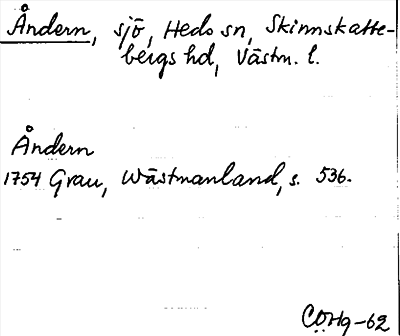 Åndern, sjö, Hedo sn, Skinnskatte-
bergs hd, Västm. l.
Åndern
1754 Grau, Wästmanland, s. 536.
COHg-62